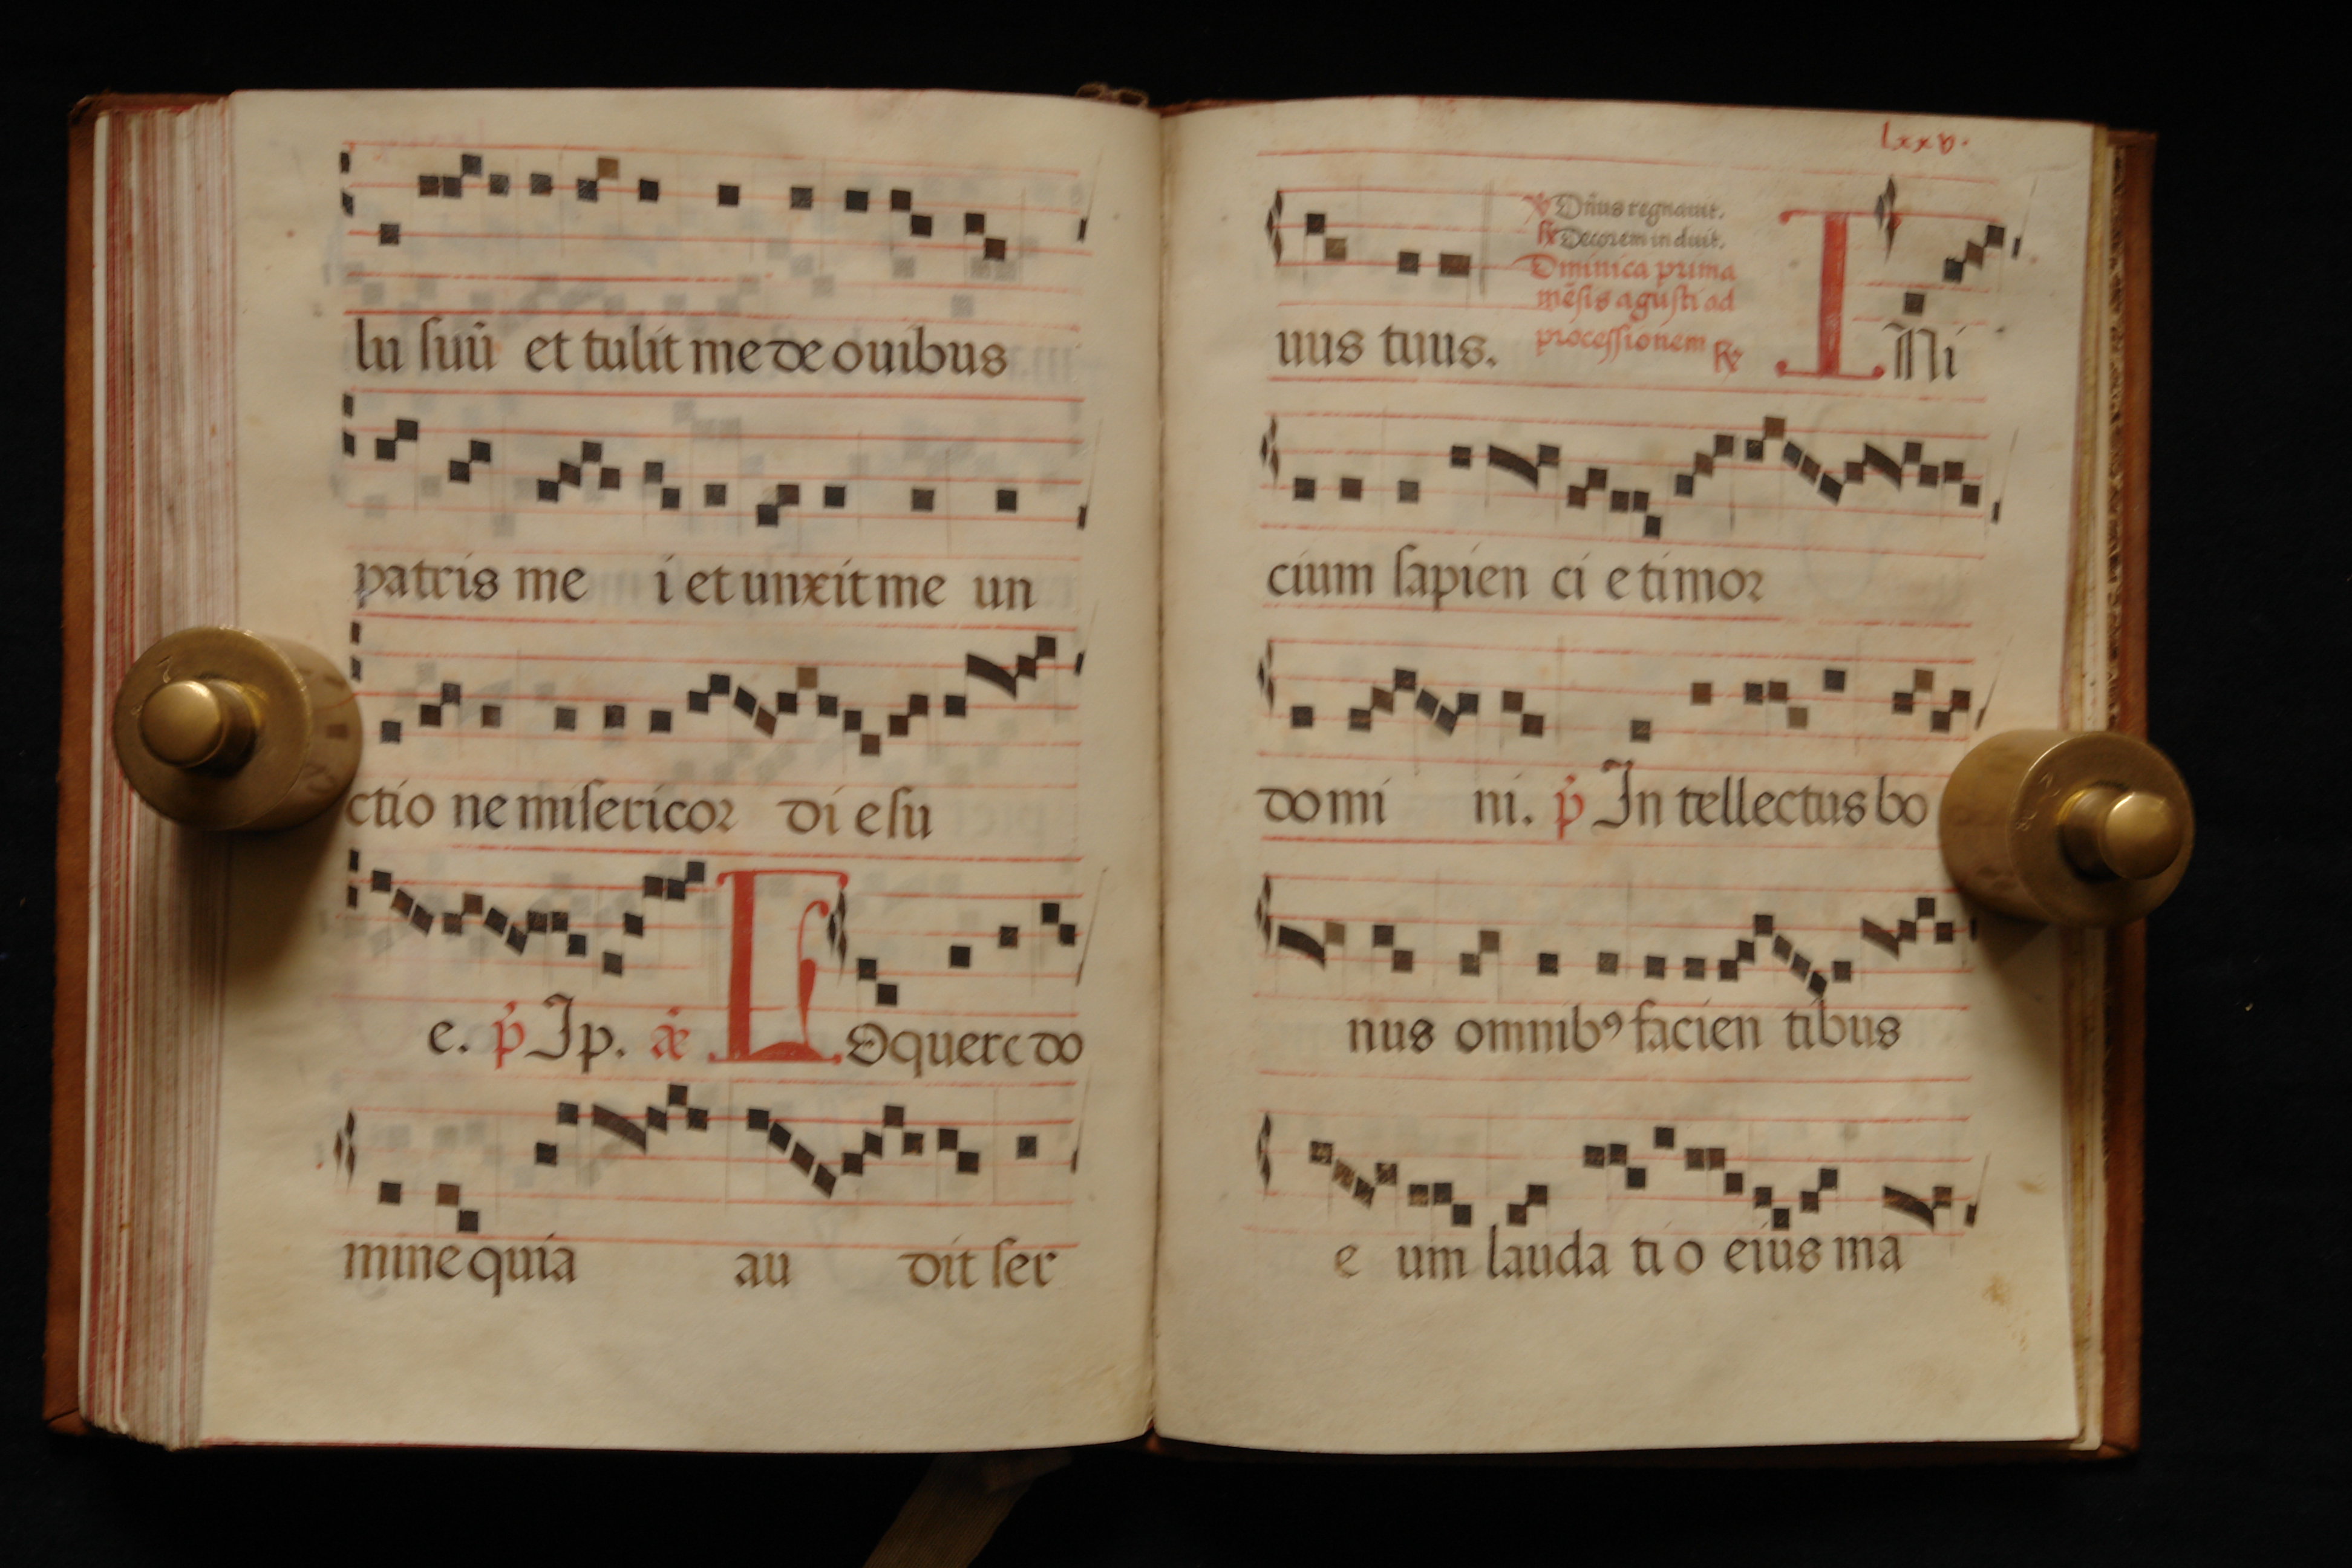 lu suū et tulit me de ouibus
patris me i et unxit me un
ctio ne misericor di e su
e. p̄ Ip. æ L Oquere do
mine quia au dit ser
lxxv.
℣ Dñus regnauit.
℟ Decorem induit.
Dminica prima
mēsis agusti ad
processionem ℟
uus tuus. I Ni
cium sapien ci e timor
domi ni. p̄ In tellectus bo
nus omnibꝯ facien tibus
e um lauda ti o eius ma